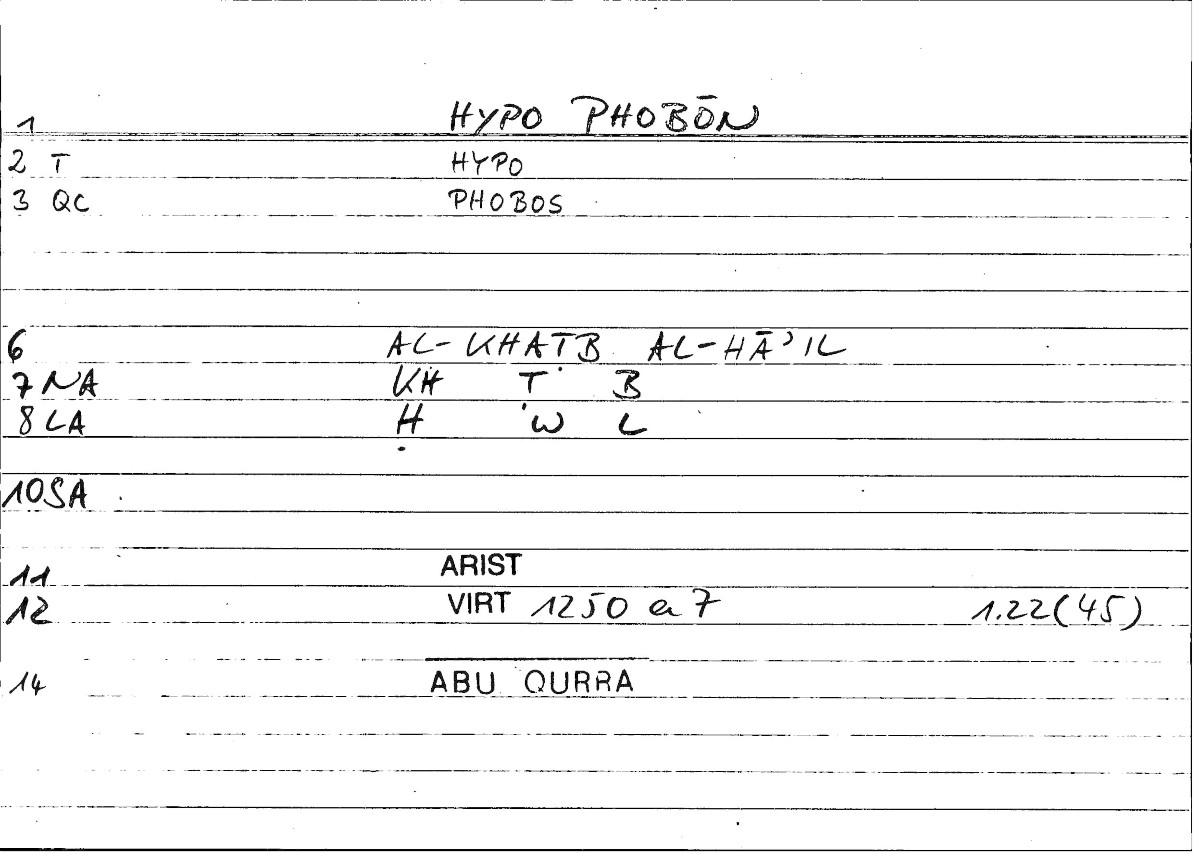 1 HYPO PHOBŌN
2 T HYPO
3 QC PHOBOS
6 AL-KHAṬB AL-HĀʾIL
7 NA KH Ṭ B
8 LA Ḥ W L
10 SA
11 ARIST
12 VIRT 1250 a 7 1.22(45)
14 ABU QURRA